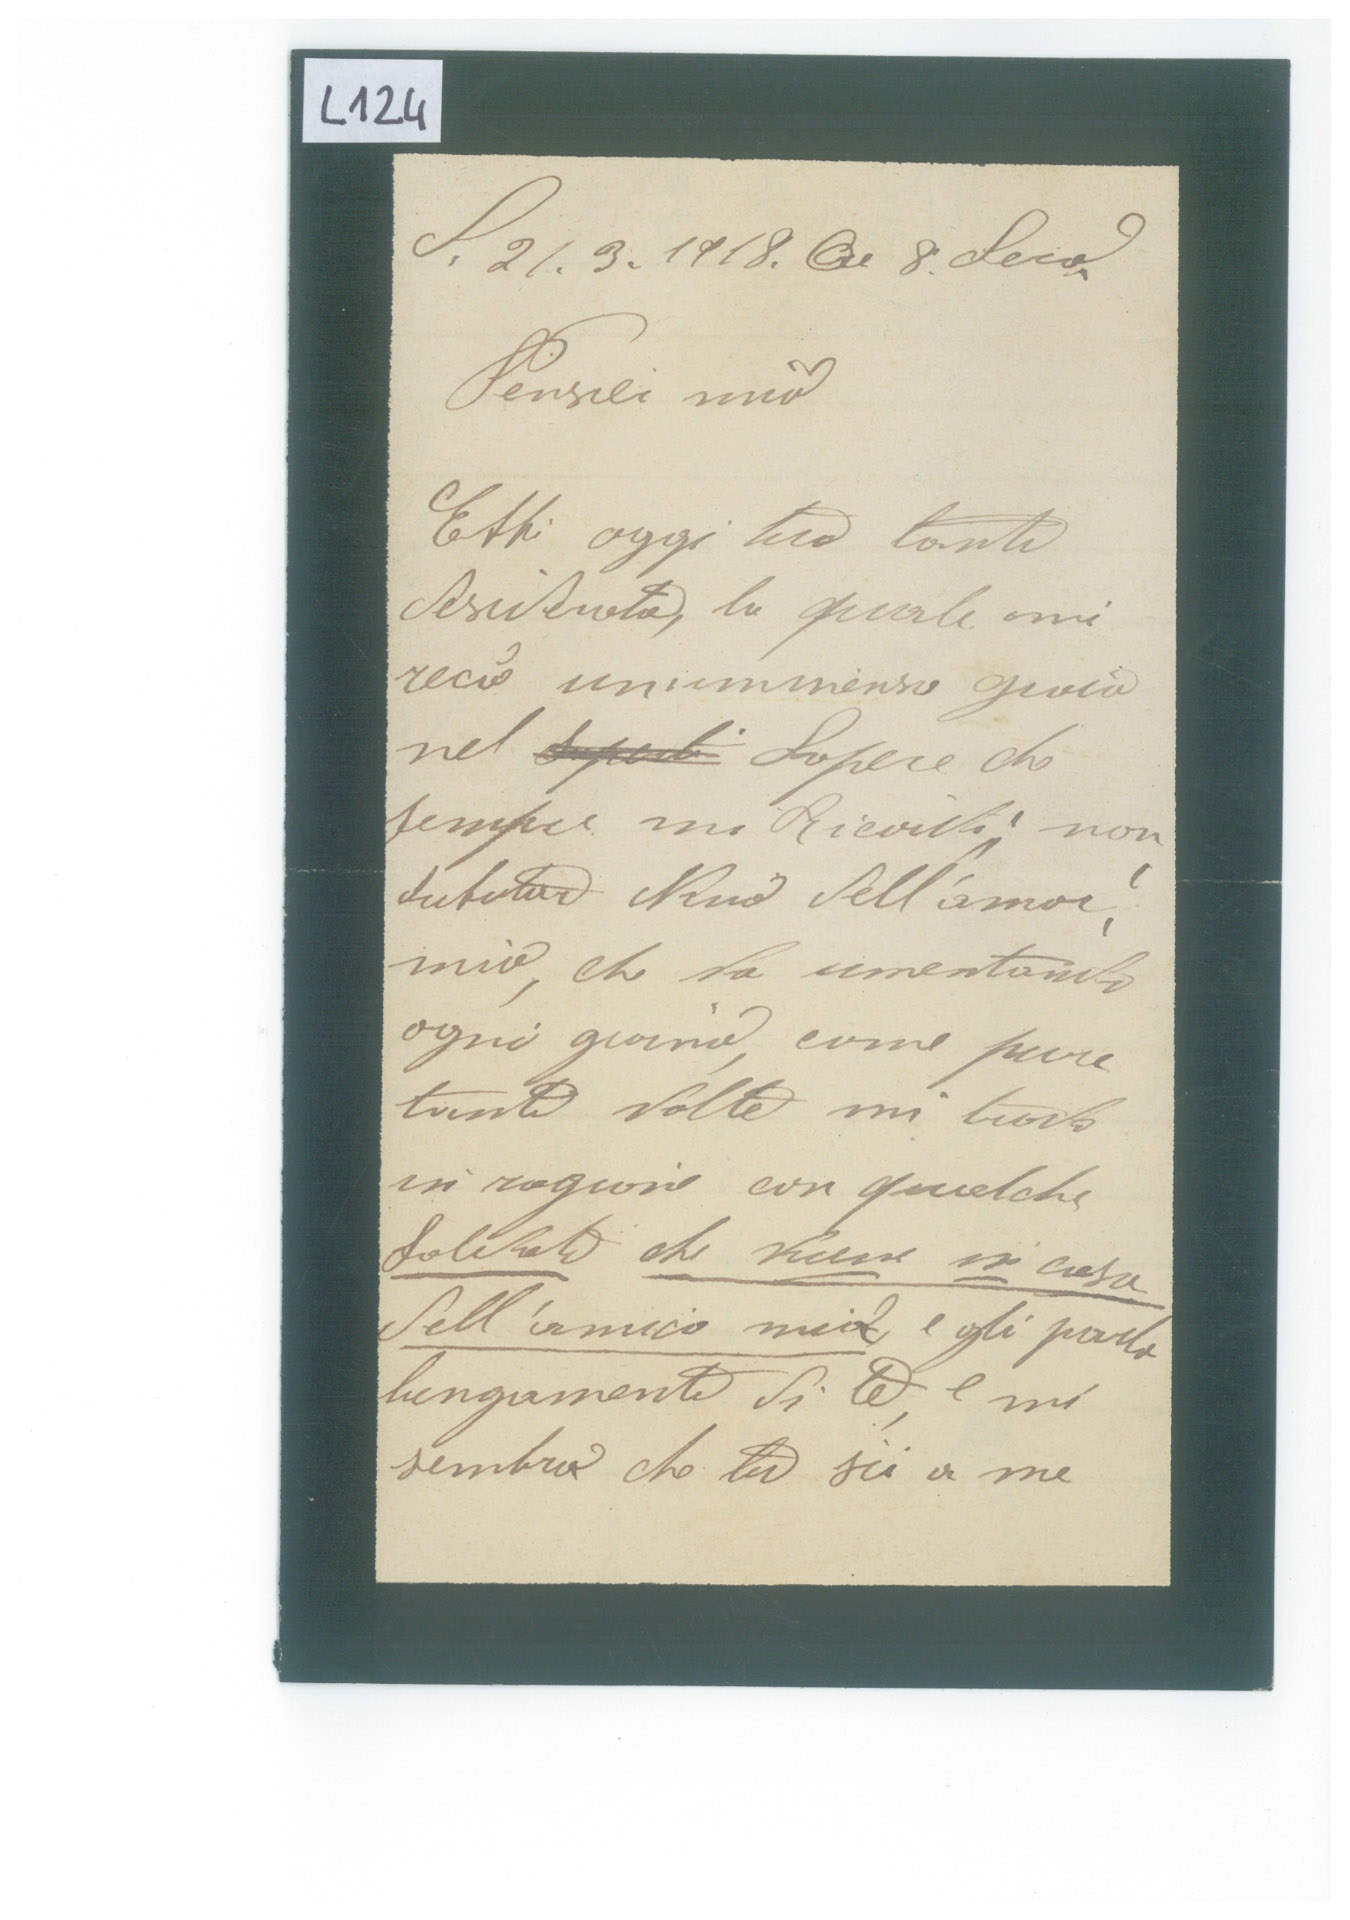 L124
S. 21. 3. 1918. Ore 8. Sera
Pensier mio
Ebbi oggi tua tanto
desiderata, la quale mi
recò un immenso gioia
nel Sapere che
sempre mi Ricordi; non
dell'amor
mio, che va umentando
ogni giorno, come pure
tante volte mi trovo
in ragione con quelche
Soldato che viene in casa
dell'amico mio, e gli parlo
lungamente di te, e mi
sembra che tu sii a me